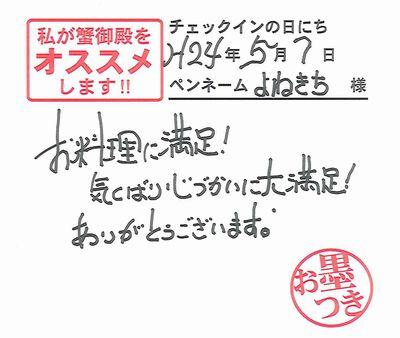 私が蟹御殿を
オススメ
します!!
チェックインの日にち
H24年5月7日
ペンネーム よねきち 様
お料理に満足!
気くばり・じづかいに大満足!
ありがとうございます。
お墨つき